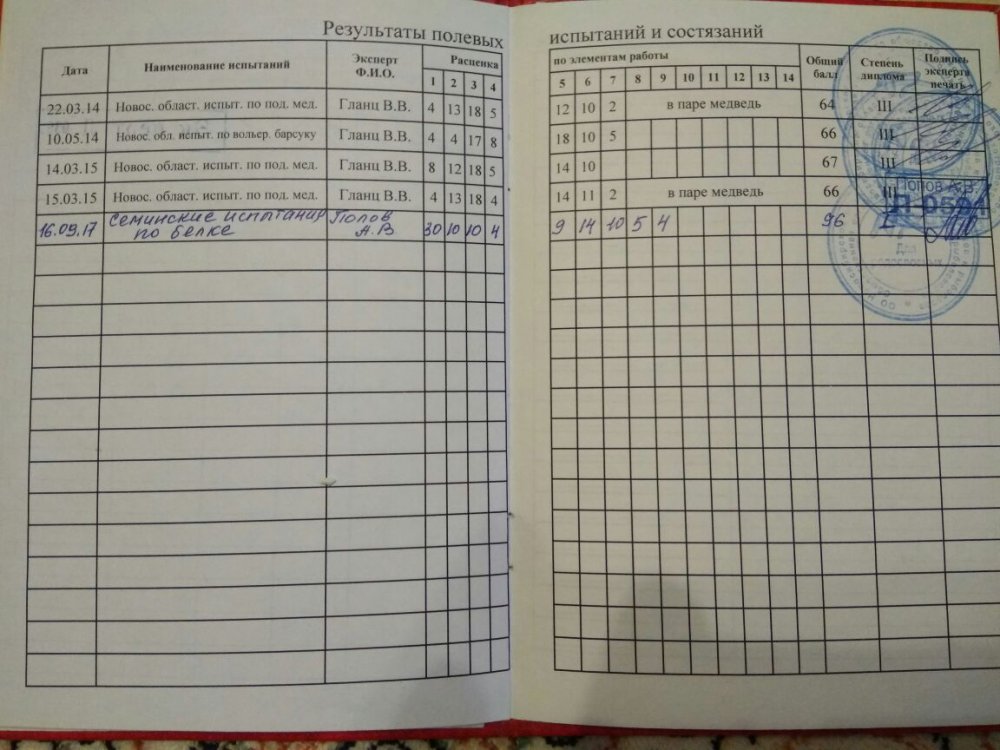 Результаты полевых испытаний и состязаний
Дата Наименование испытаний Эксперт Ф.И.О. Расценка по элементам работы Общий балл Степень диплома Подпись эксперта печать
1 2 3 4 5 6 7 8 9 10 11 12 13 14
22.03.14 Новос. област. испыт. по под. мед. Гланц В.В. 4 13 18 5 12 10 2 в паре медведь 64 III
10.05.14 Новос. обл. испыт. по вольер. барсуку Гланц В.В. 4 4 17 8 18 10 5 66 III
14.03.15 Новос. област. испыт. по под. мед. Гланц В.В. 8 12 18 5 14 10 67 III
15.03.15 Новос. област. испыт. по под. мед. Гланц В.В. 4 13 18 4 14 11 2 в паре медведь 66 III
16.09.17 Семинские испытания по белке Попов А.В 30 10 10 4 9 14 10 5 4 96 I
Попов А.В.
Для